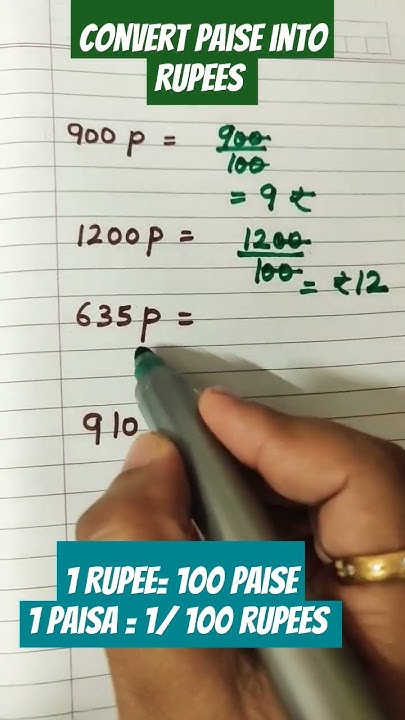 CONVERT PAISE INTO
RUPEES
900 p = 900/100
= 9 ₹
1200 p = 1200/100 = ₹12
635 p =
910
1 RUPEE= 100 PAISE
1 PAISA = 1/ 100 RUPEES